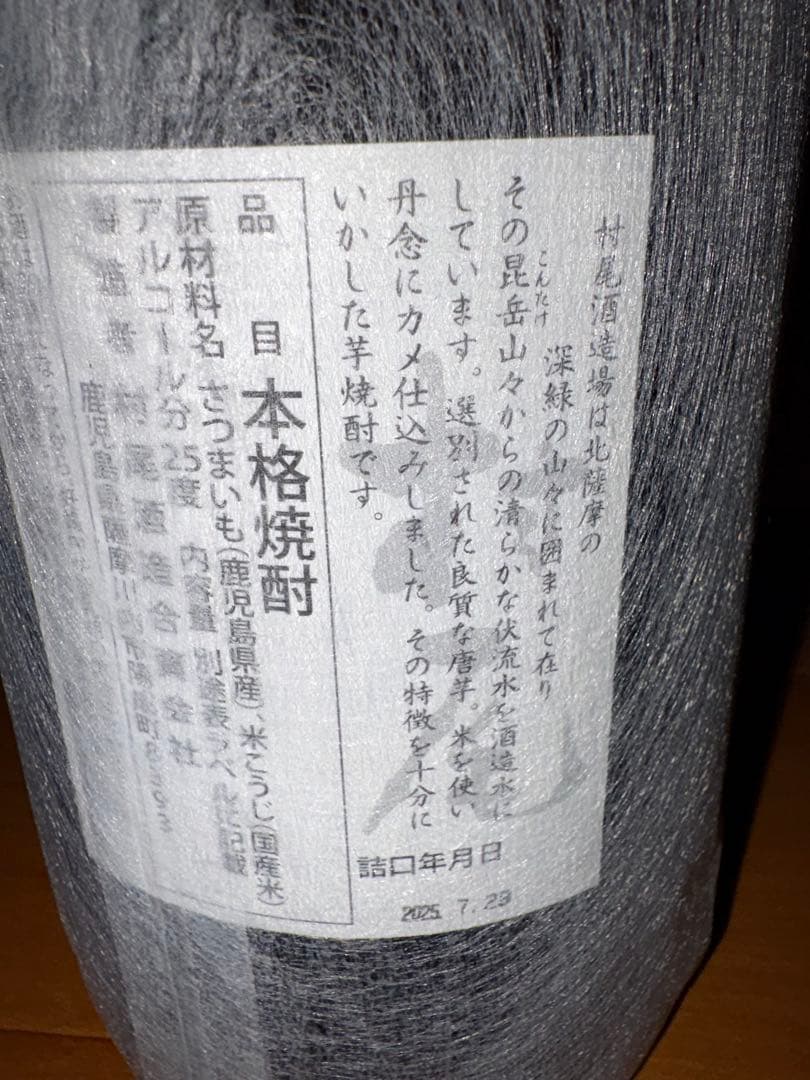 村尾酒造場は北薩摩の
深緑の山々に囲まれて在り
こんたけ
その昆岳山々からの清らかな伏流水を酒造水に
しています。選別された良質な唐芋。米を使い
丹念にカメ仕込みしました。その特徴を十分に
いかした芋焼酎です。
詰口年月日
2025. 7.23
品目 本格焼酎
原材料名 さつまいも(鹿児島県産)、米こうじ(国産米)
アルコール分25度 内容量 別途表ラベルに記載
製造者 村尾酒造合資会社
鹿児島県薩摩川内市陽成町8393